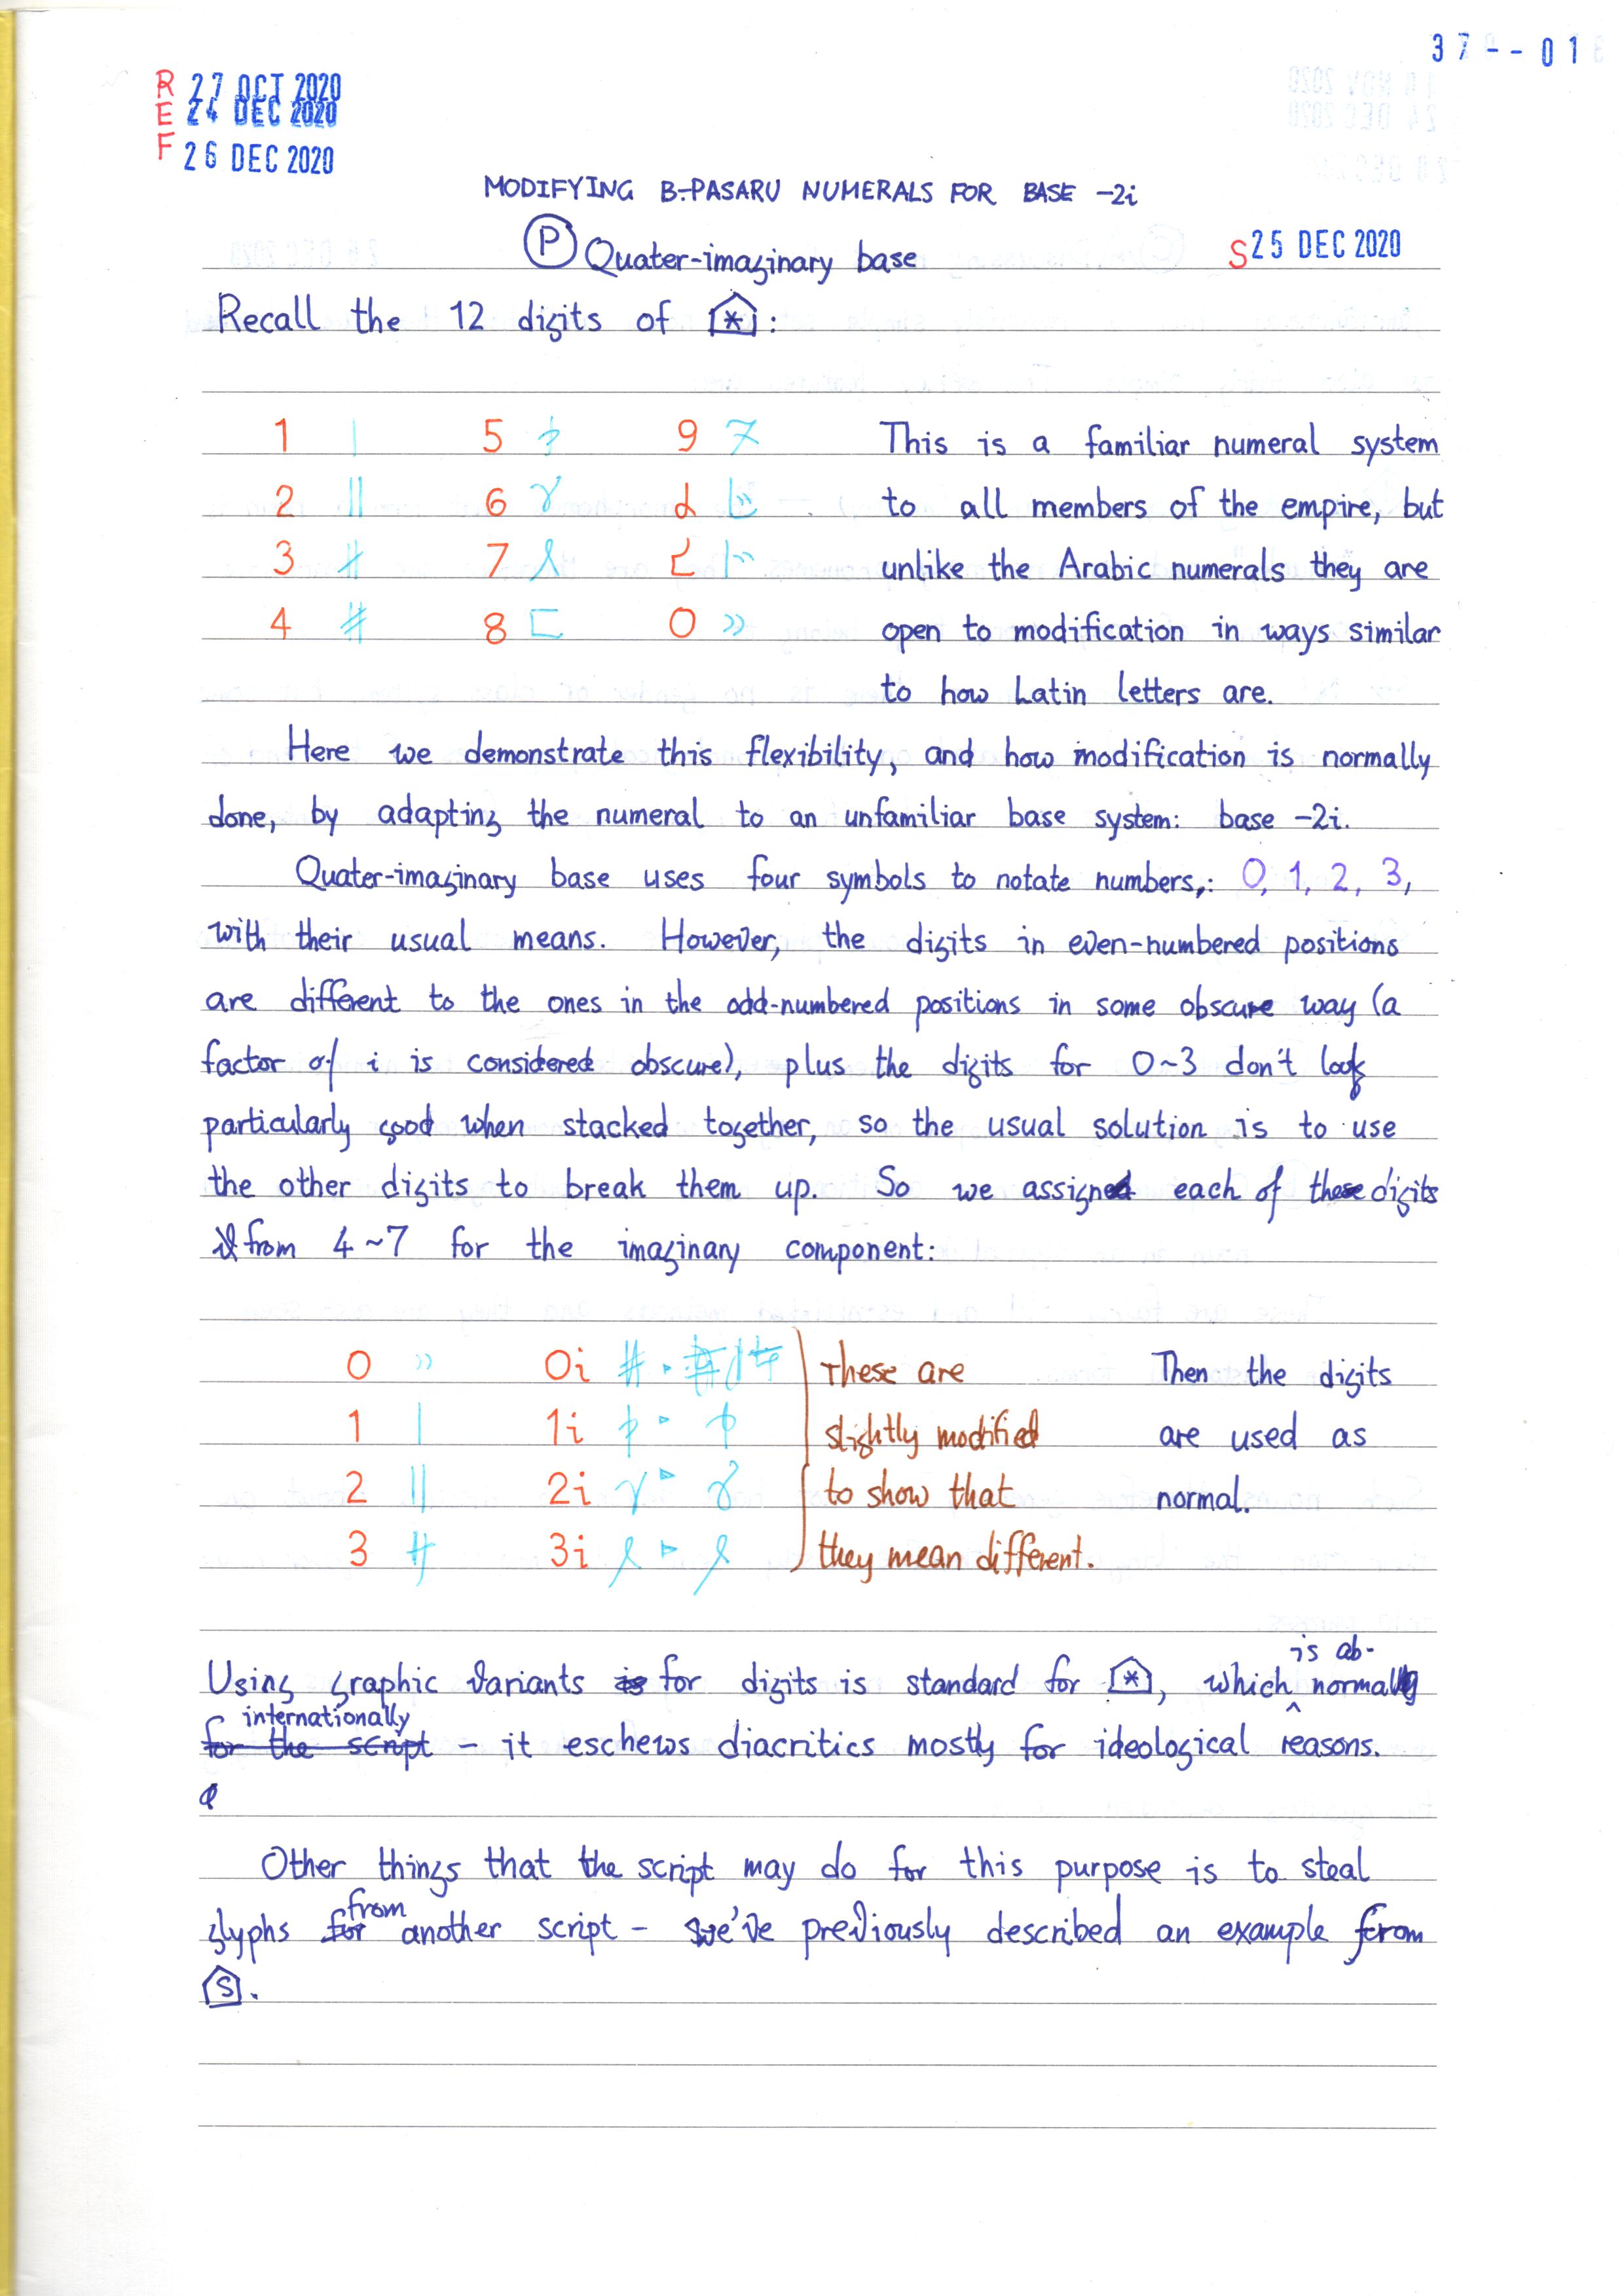 37--01
REF 27 OCT 2020
24 DEC 2020
26 DEC 2020
MODIFYING B-PASARU NUMERALS FOR BASE -2i
P Quater-imaginary base
S 25 DEC 2020
Recall the 12 digits of *:
1 5 9 This is a familiar numeral system
2 6 to all members of the empire, but
3 7 unlike the Arabic numerals they are
4 8 0 open to modification in ways similar
to how Latin letters are.
Here we demonstrate this flexibility, and how modification is normally
done, by adapting the numeral to an unfamiliar base system: base -2i.
Quater-imaginary base uses four symbols to notate numbers: 0, 1, 2, 3,
with their usual means. However, the digits in even-numbered positions
are different to the ones in the odd-numbered positions in some obscure way (a
factor of i is considered obscure), plus the digits for 0~3 don't look
particularly good when stacked together, so the usual solution is to use
the other digits to break them up. So we assigned each of these digits
from 4~7 for the imaginary component:
0 0i These are Then the digits
1 1i slightly modified are used as
2 2i to show that normal.
3 3i they mean different.
Using graphic variants for digits is standard for *, which is abnormal
internationally - it eschews diacritics mostly for ideological reasons.
Other things that the script may do for this purpose is to steal
glyphs from another script - we've previously described an example from
S.